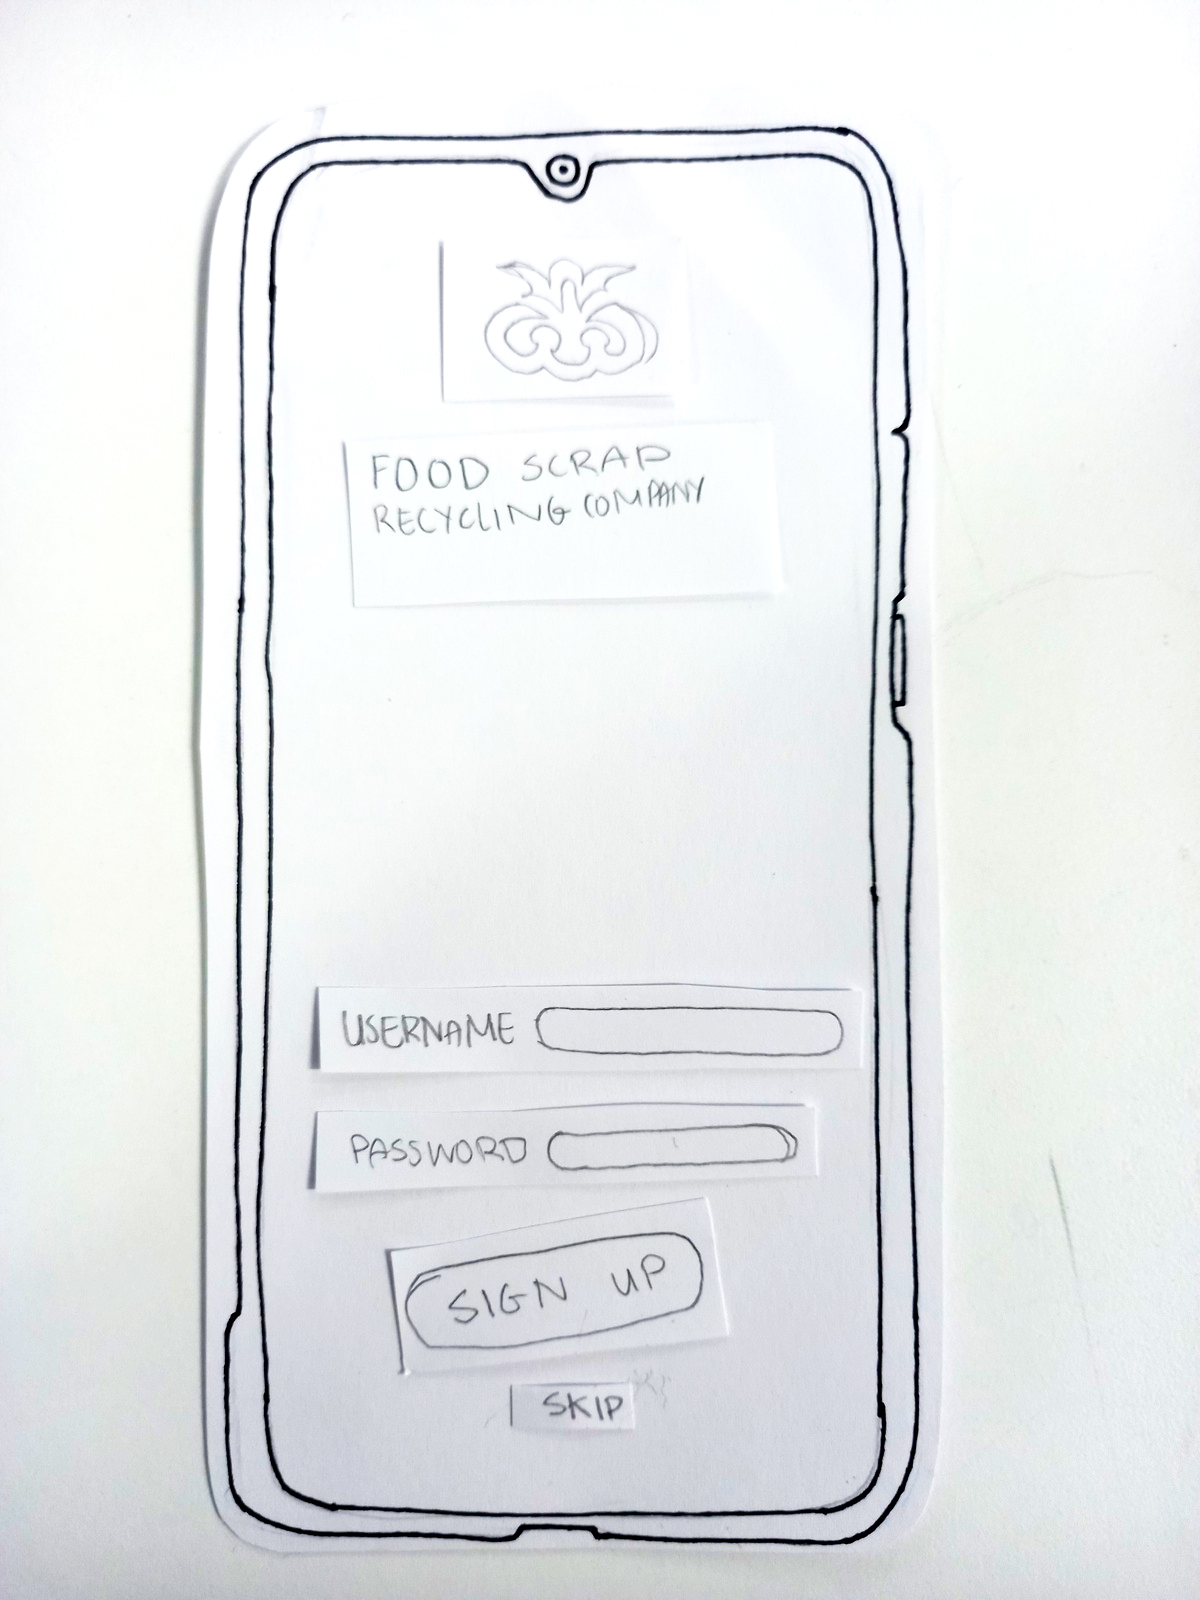 FOOD SCRAP
RECYCLING COMPANY
USERNAME
PASSWORD
SIGN UP
SKIP